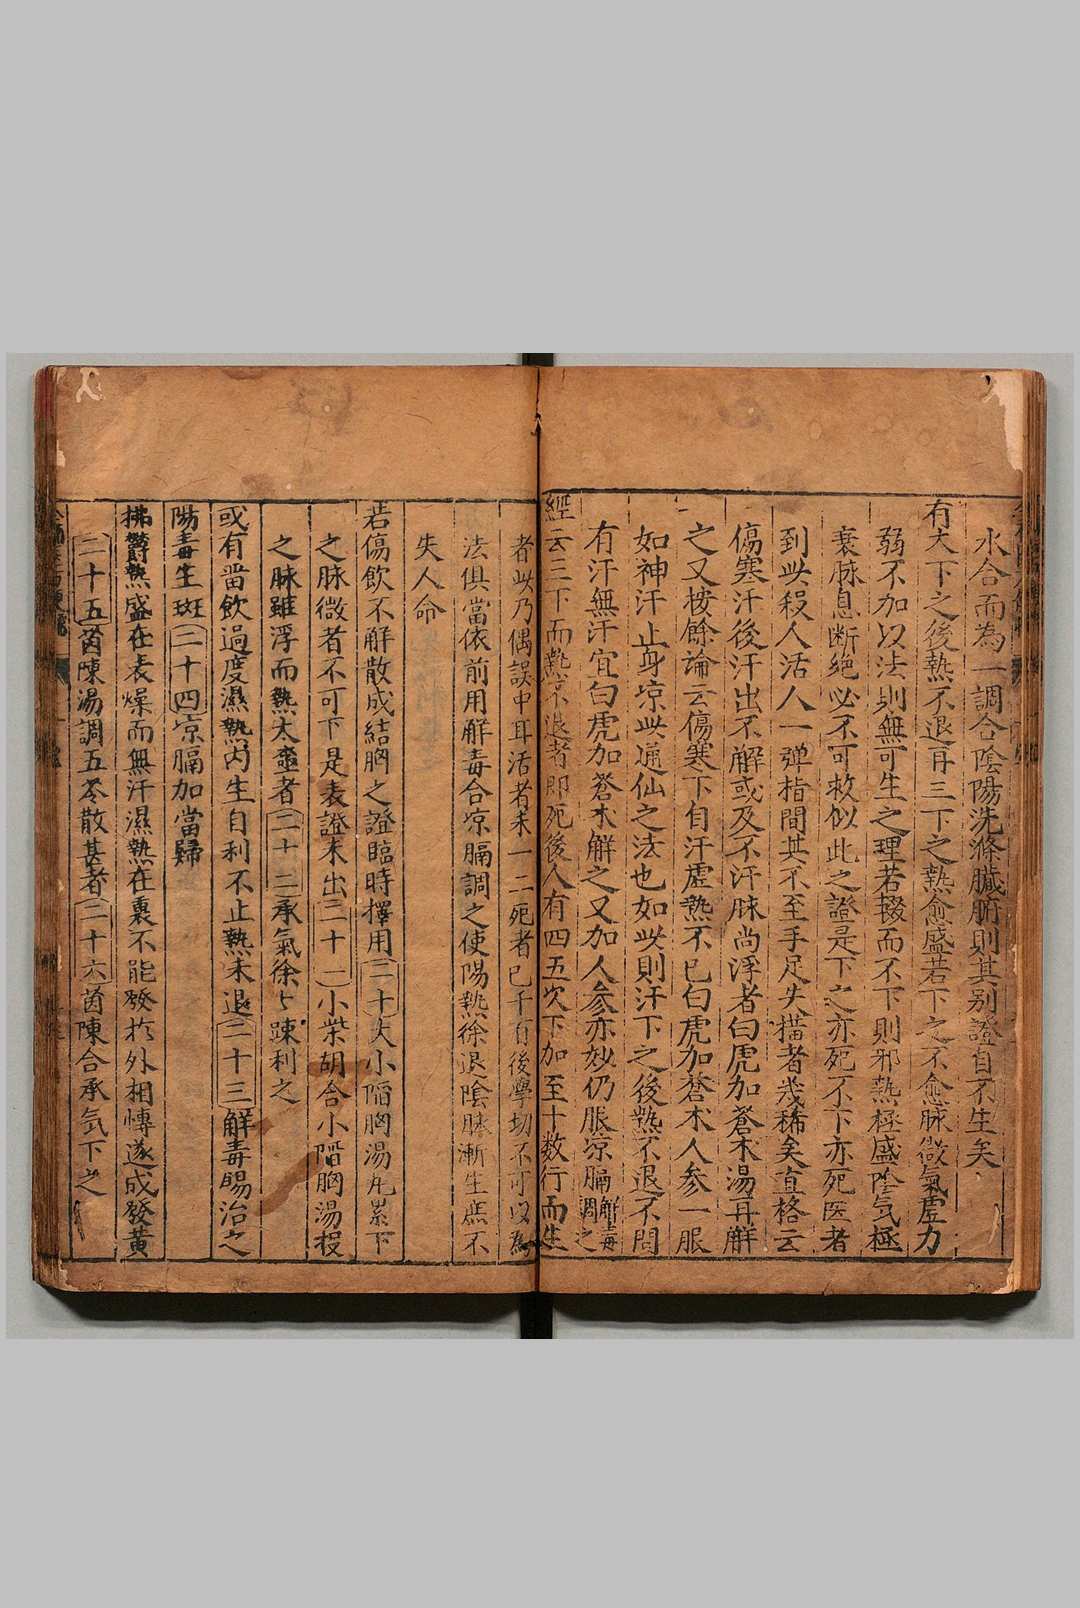 水合而為一調合陰陽洗滌臟腑則其别證自不生矣
有大下之後熱不退再三下之熱愈盛若下之不愈脉微氣虛力
弱不加以法則無可生之理若輟而不下則邪熱極盛陰气極
衰脉息断絕必不可救似此之證是下之亦死不下亦死医者
到此殺人活人一弾指間其不至手足失措者幾稀矣直格云
傷寒汗後汗出不解或及不汗脉尚浮者白虎加蒼朮湯再解
之又按餘論云傷寒下自汗虛熱不已白虎加蒼朮人参一服
如神汗止身凉此通仙之法也如此則汗下之後熱不退不問
有汗無汗宜白虎加蒼朮解之又加人参亦妙仍服凉膈解毒調之
經云三下而熱不退者即死後人有四五次下加至十数行而生
者此乃偶誤中耳活者未一二死者已千百後學切不可以為
法俱當依前用解毒合凉膈調之使陽熱徐退陰脉漸生庶不
失人命
若傷飲不解散成結胸之證臨時擇用二十大小陷胸湯丸累下
之脉微者不可下是表證未出二十一小柴胡合小陷胸湯投
之脉雖浮而熱太盛者二十二承氣徐々踈利之
或有當飲過度濕熱内生自利不止熱未退二十三解毒賜治之
陽毒生斑二十四凉膈加當歸
拂鬱熱盛在表燥而無汗濕熱在裏不能發於外相慱遂成發黄
二十五茵陳湯調五苓散甚者二十六茵陳合承气下之